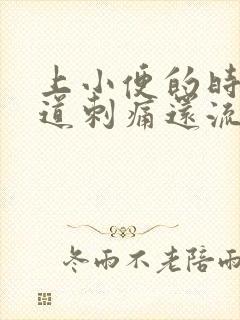 上小便的時
道刺痛還流
冬雨不老陪雨